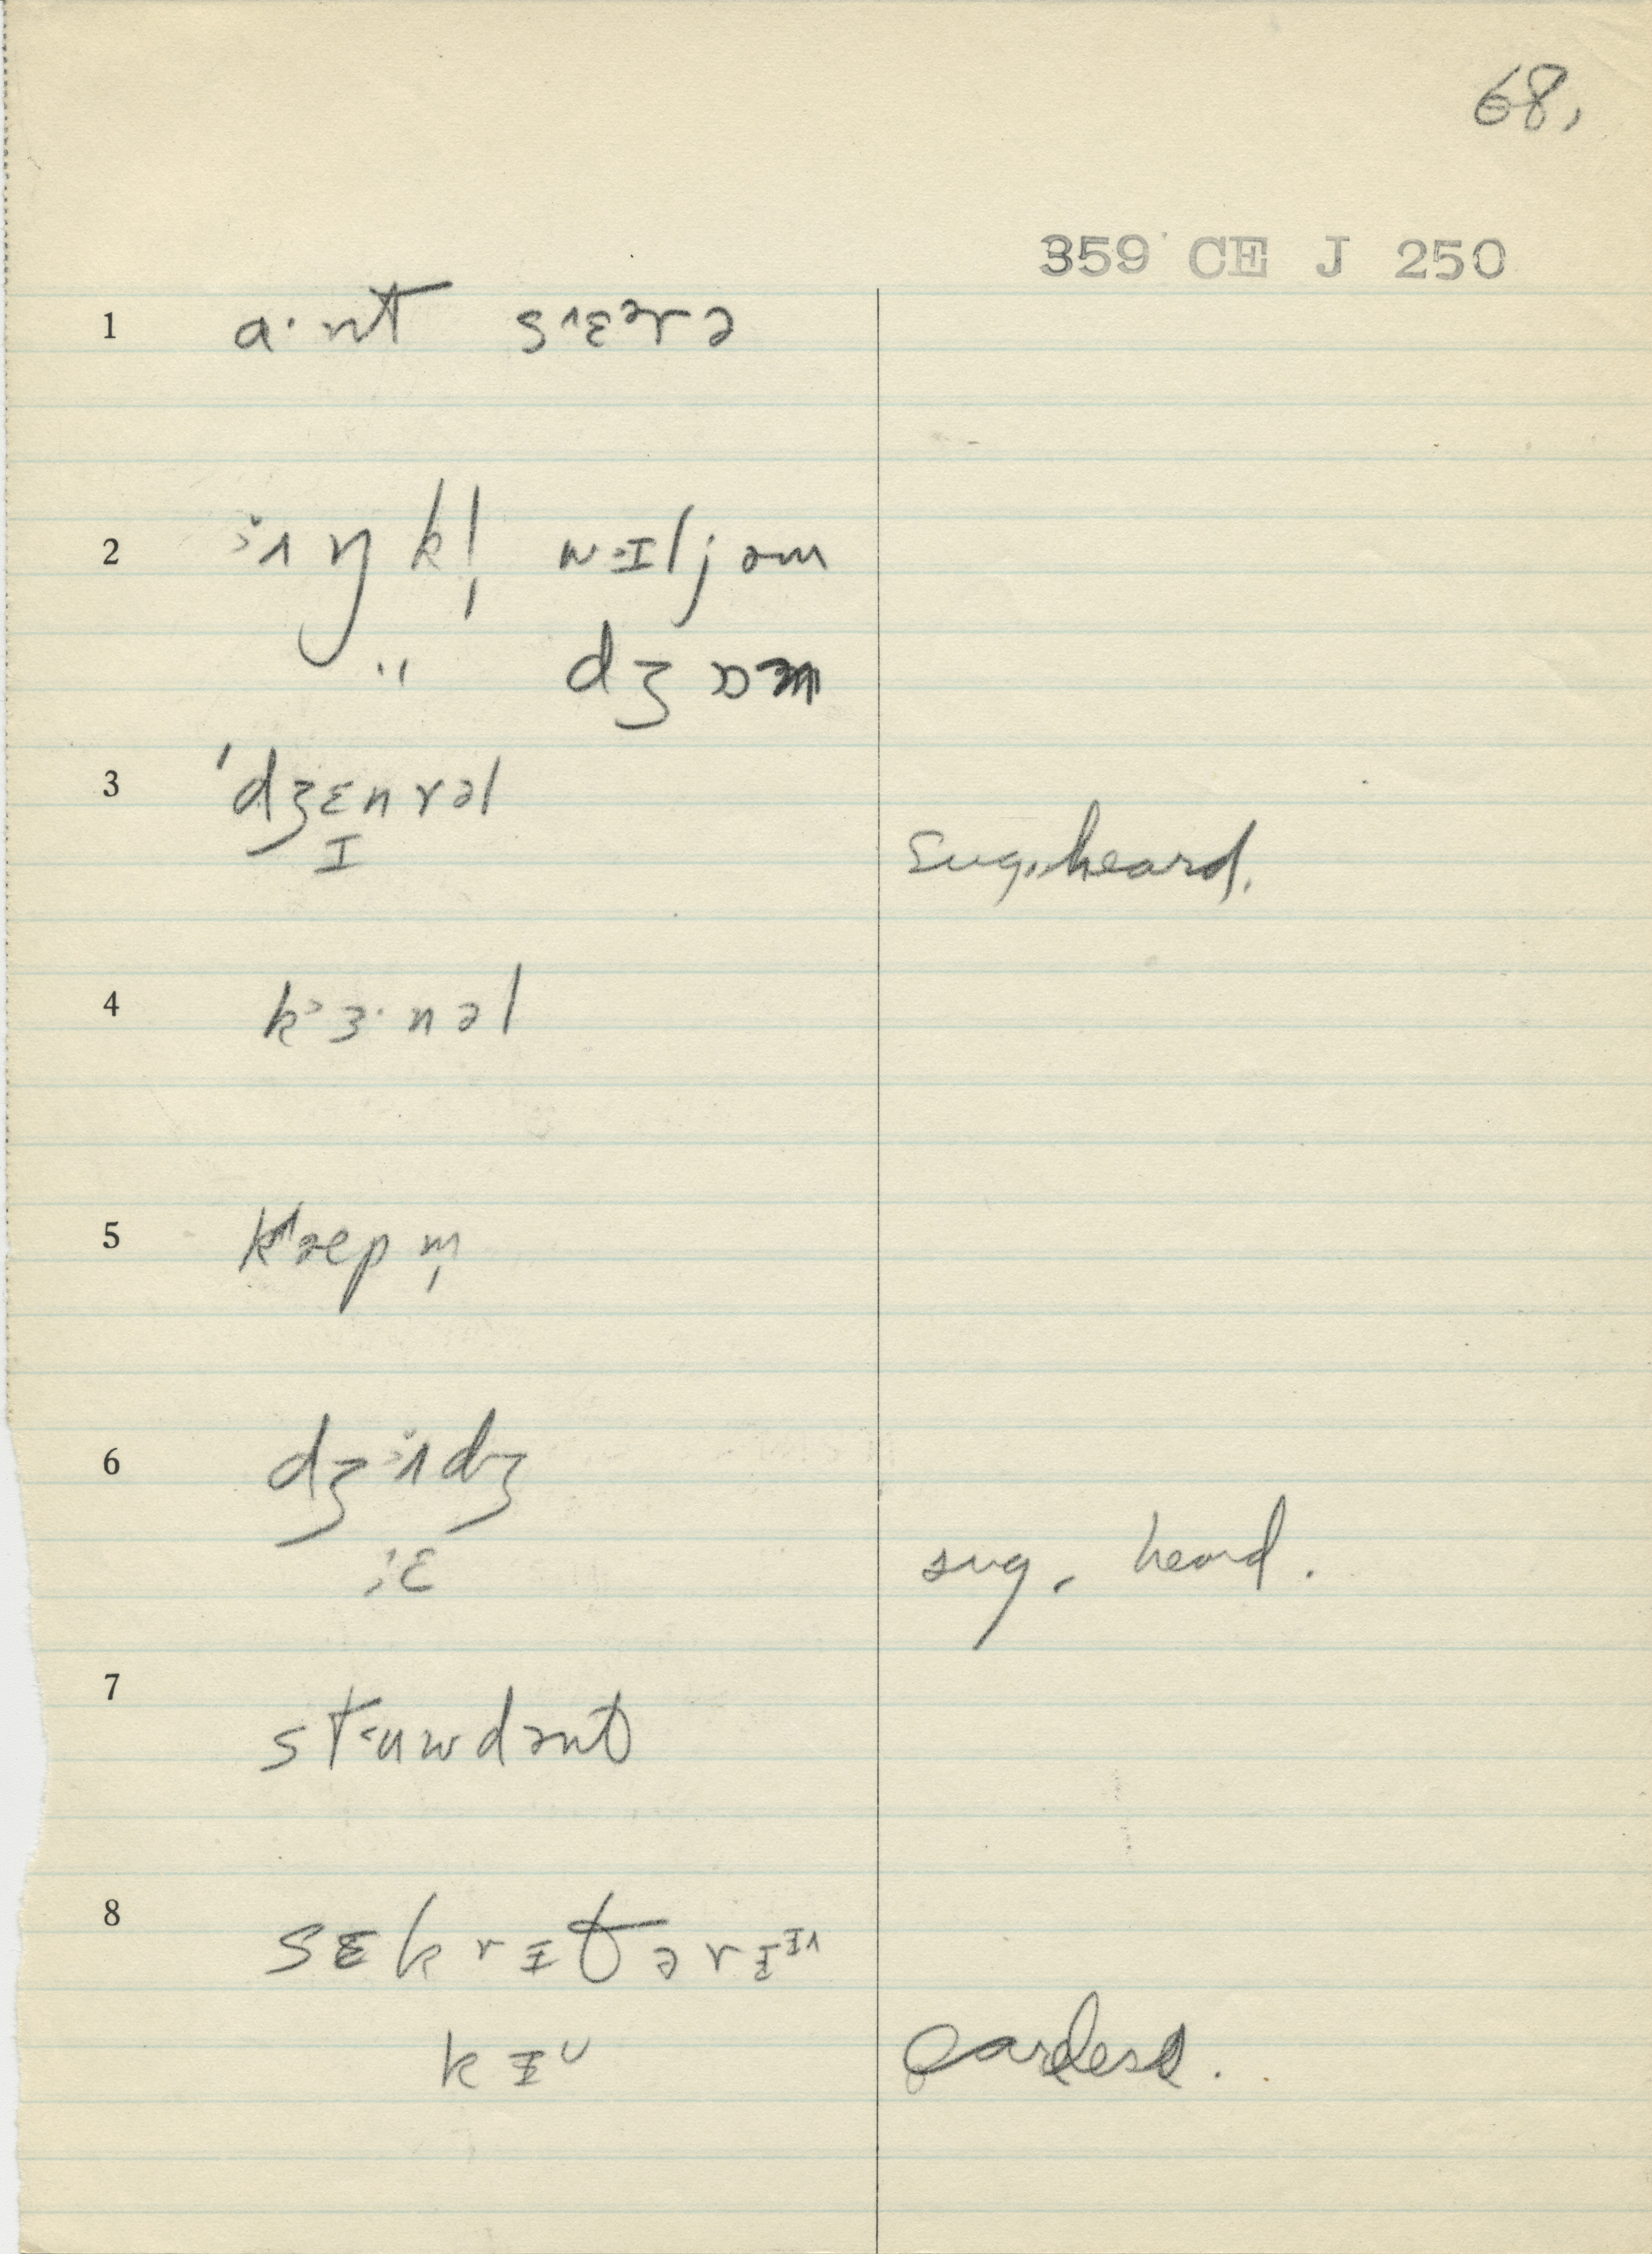 68.
359 CE J 250
1 ɑ·nt sɛərə
2 ʌŋkl̩ wɪljəm
" dʒɒm
3 ˈdʒɛnrəl
ɪ sug. heard.
4 kɜ·nəl
5 kæpm̩
6 dʒʌdʒ
ɛ sug. heard.
7 stuwdənt
8 sɛkrɪtərɪ
kɪᴜ careless.